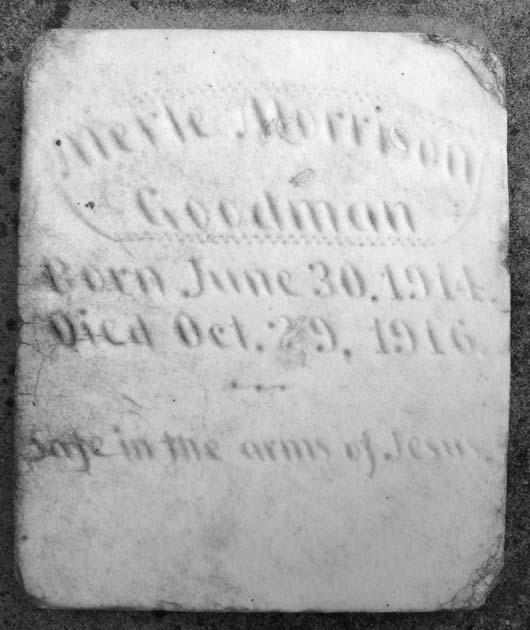 Merle Morrison
Goodman
Born June 30, 1914.
Died Oct. 29, 1916.
Safe in the arms of Jesus.